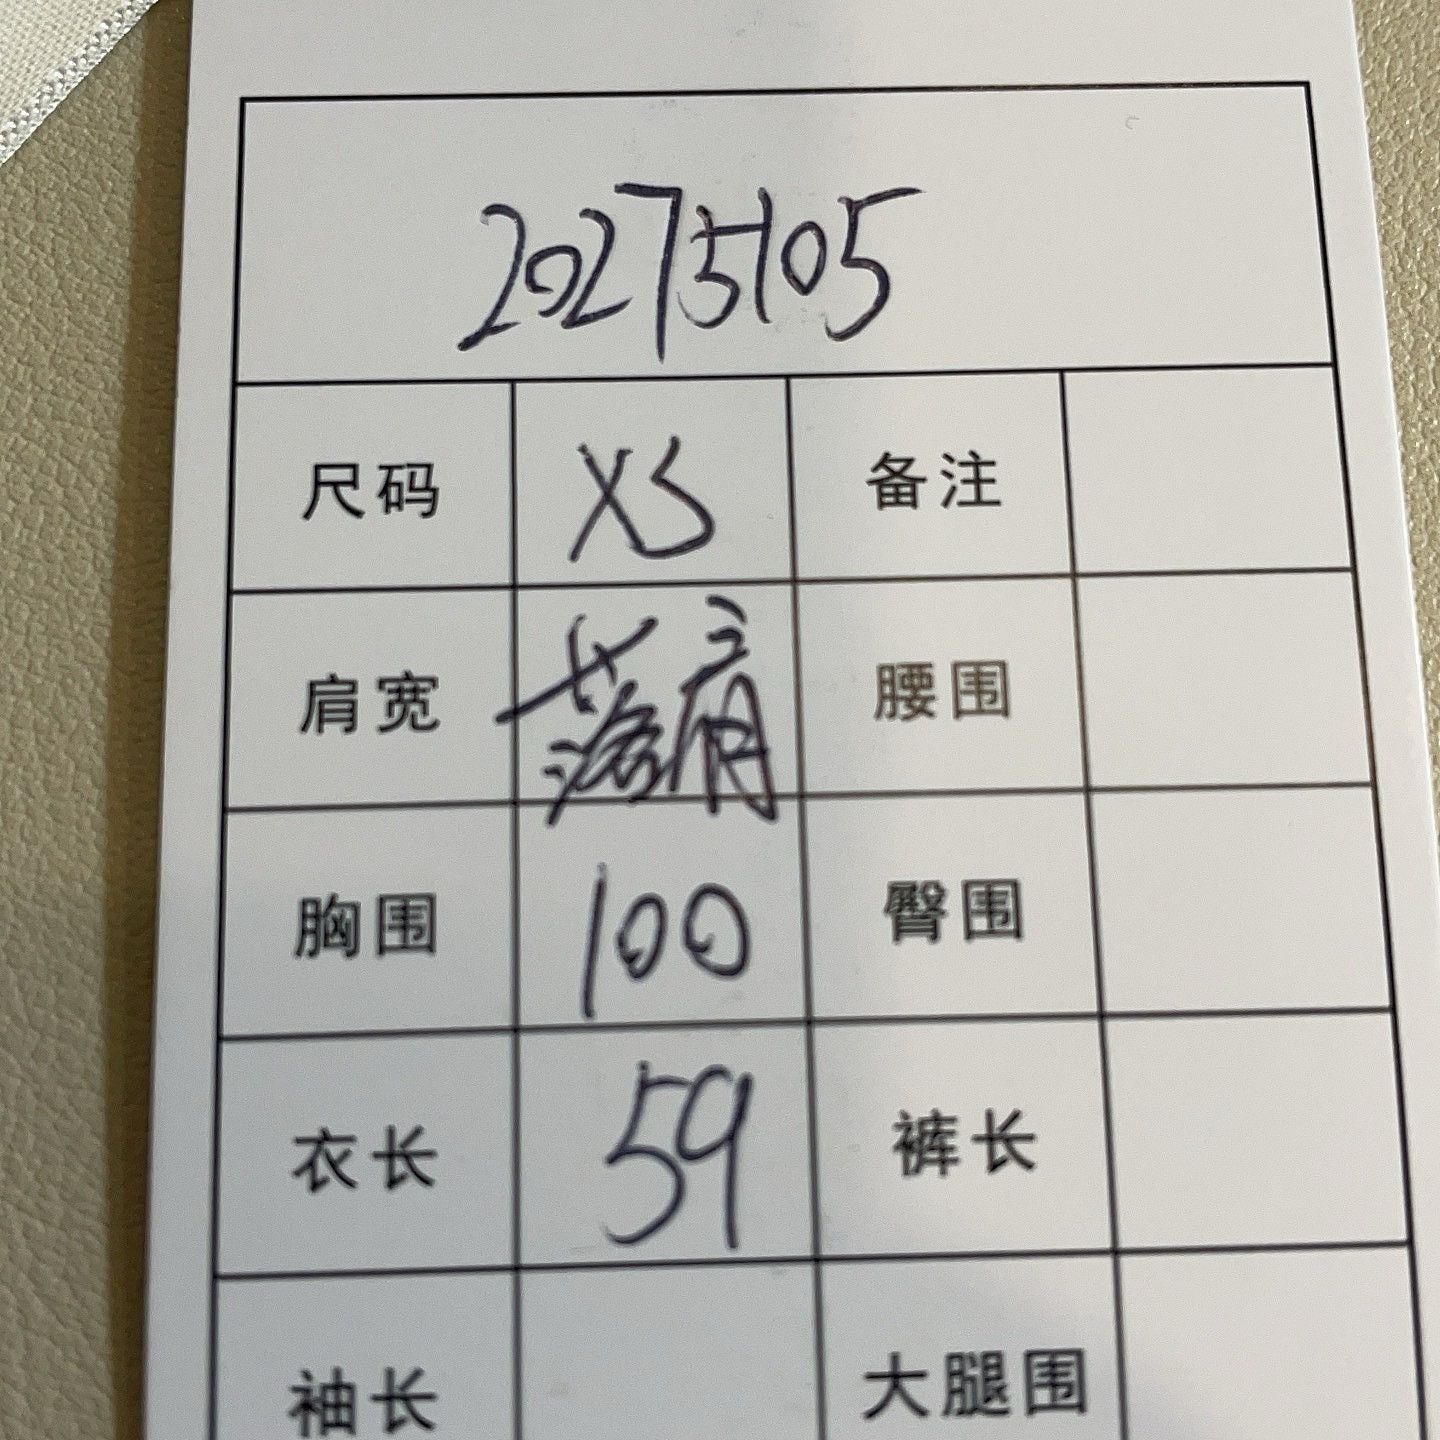 20275105
尺码 XS 备注
肩宽 落肩 腰围
胸围 100 臀围
衣长 59 裤长
袖长 大腿围